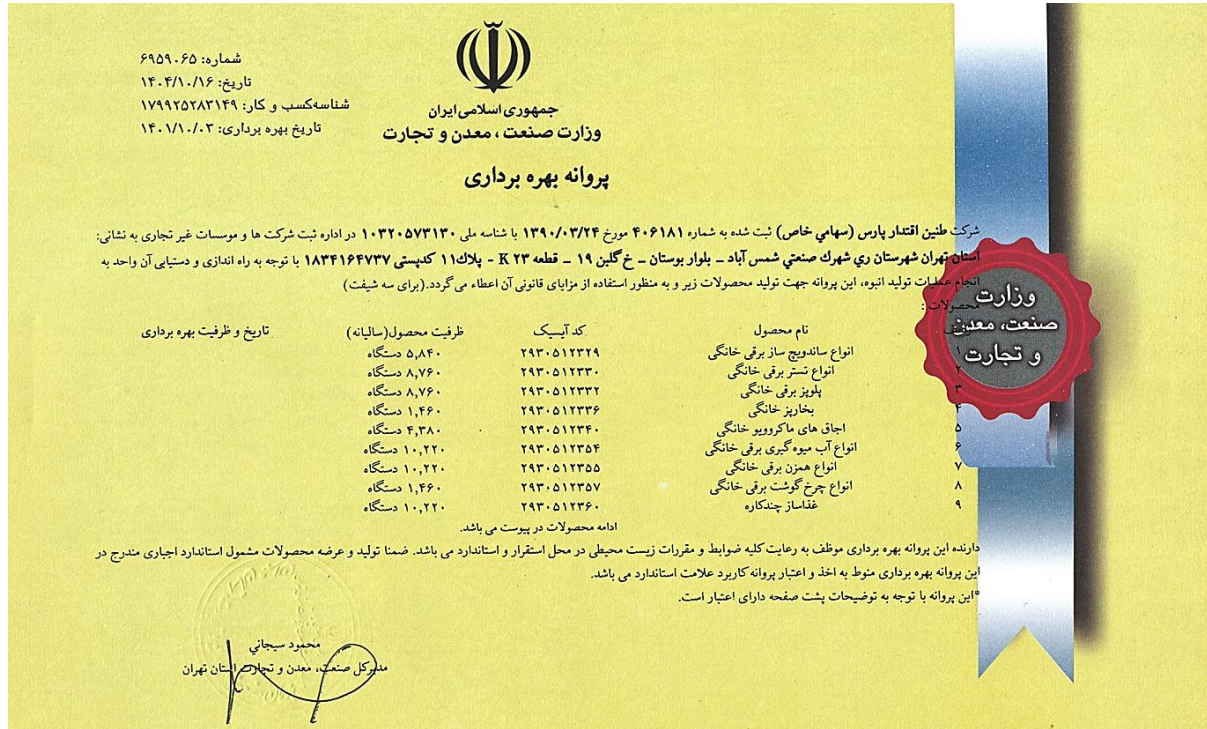 شماره: ۶۹۵۹۰۶۵
تاریخ: ۱۴۰۴/۱۰/۱۶
شناسه‌کسب و کار: ۱۷۹۹۲۵۲۸۳۱۴۹
تاریخ بهره برداری: ۱۴۰۱/۱۰/۰۳
جمهوری اسلامی ایران
وزارت صنعت ، معدن و تجارت
پروانه بهره برداری
شرکت طنین اقتدار پارس (سهامي خاص) ثبت شده به شماره ۴۰۶۱۸۱ مورخ ۱۳۹۰/۰۳/۲۴ با شناسه ملی ۱۰۳۲۰۵۷۳۱۳۰ در اداره ثبت شرکت ها و موسسات غیر تجاری به نشانی:
استان تهران شهرستان ري شهرك صنعتي شمس آباد – بلوار بوستان – خ گلبن ۱۹ – قطعه K ۲۳ - پلاك۱۱ کدپستی ۱۸۳۴۱۶۴۷۳۷ با توجه به راه اندازی و دستیابی آن واحد به
انجام عملیات تولید انبوه، این پروانه جهت تولید محصولات زیر و به منظور استفاده از مزایای قانونی آن اعطاء می گردد.(برای سه شیفت)
محصولات :
نام محصول کد آیسیک ظرفیت محصول(سالیانه) تاریخ و ظرفیت بهره برداری
۱ انواع ساندویچ ساز برقی خانگی ۲۹۳۰۵۱۲۳۲۹ ۵,۸۴۰ دستگاه
۲ انواع تستر برقی خانگی ۲۹۳۰۵۱۲۳۳۰ ۸,۷۶۰ دستگاه
۳ پلوپز برقی خانگی ۲۹۳۰۵۱۲۳۳۲ ۸,۷۶۰ دستگاه
۴ بخارپز خانگی ۲۹۳۰۵۱۲۳۳۶ ۱,۴۶۰ دستگاه
۵ اجاق های ماکروویو خانگی ۲۹۳۰۵۱۲۳۴۰ ۴,۳۸۰ دستگاه
۶ انواع آب میوه گیری برقی خانگی ۲۹۳۰۵۱۲۳۵۴ ۱۰,۲۲۰ دستگاه
۷ انواع همزن برقی خانگی ۲۹۳۰۵۱۲۳۵۵ ۱۰,۲۲۰ دستگاه
۸ انواع چرخ گوشت برقی خانگی ۲۹۳۰۵۱۲۳۵۷ ۱,۴۶۰ دستگاه
۹ غذاساز چندکاره ۲۹۳۰۵۱۲۳۶۰ ۱۰,۲۲۰ دستگاه
ادامه محصولات در پیوست می باشد.
دارنده این پروانه بهره برداری موظف به رعایت کلیه ضوابط و مقررات زیست محیطی در محل استقرار و استاندارد می باشد. ضمنا تولید و عرضه محصولات مشمول استاندارد اجباری مندرج در
این پروانه بهره برداری منوط به اخذ و اعتبار پروانه کاربرد علامت استاندارد می باشد.
*این پروانه با توجه به توضیحات پشت صفحه دارای اعتبار است.
محمود سیجاني
مدیرکل صنعت، معدن و تجارت استان تهران
وزارت
صنعت، معدن
و تجارت